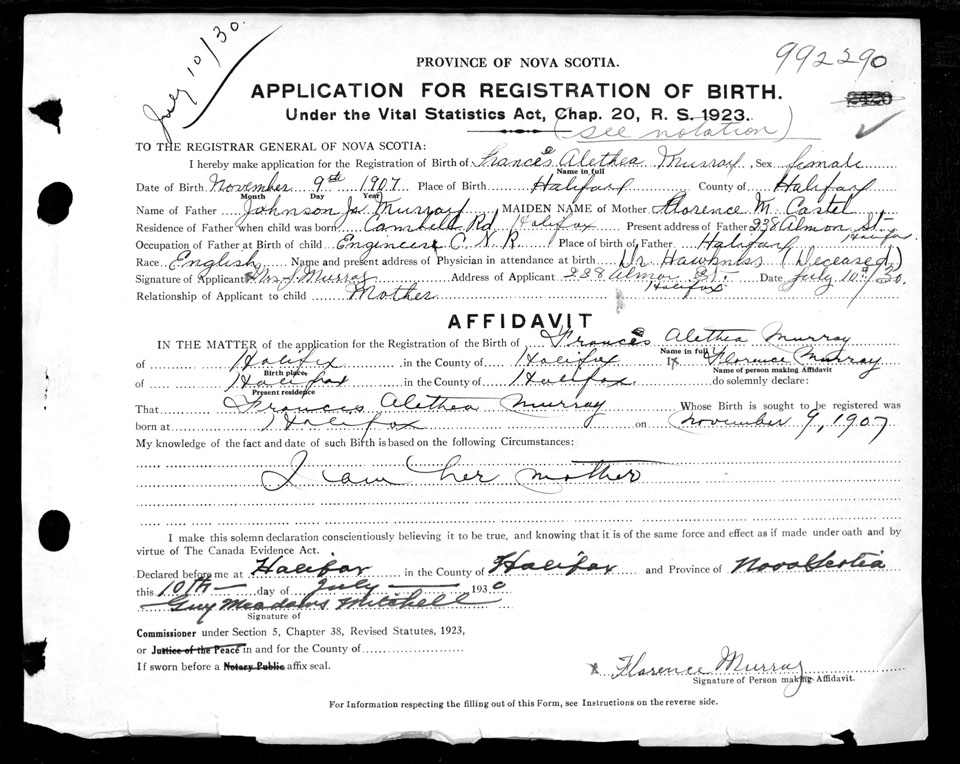 July 10/30.
992290
PROVINCE OF NOVA SCOTIA.
APPLICATION FOR REGISTRATION OF BIRTH.
Under the Vital Statistics Act, Chap. 20, R. S. 1923.
(see notation)
TO THE REGISTRAR GENERAL OF NOVA SCOTIA:
I hereby make application for the Registration of Birth of Frances Alethea Murray Sex female
Name in full
Date of Birth November 9th 1907 Place of Birth Halifax County of Halifax
Month Day Year
Name of Father Johnson Js. Murray MAIDEN NAME of Mother Florence M. Castel
Residence of Father when child was born Cambell Rd Halifax Present address of Father 238 Almon St. Halifax.
Occupation of Father at Birth of child Engineer C.N.R. Place of birth of Father Halifax
Race English Name and present address of Physician in attendance at birth Dr Hawkness (Deceased)
Signature of Applicant Mrs J Murray Address of Applicant 238 Almon St. Halifax Date July 10th/30.
Relationship of Applicant to child Mother
AFFIDAVIT
IN THE MATTER of the application for the Registration of the Birth of Frances Alethea Murray
Name in full
of Halifix in the County of Halifax I Florence Murray
Birth place Name of person making Affidavit
of Halifax in the County of Halifax. do solemnly declare:
Present residence
That Frances Alethea Murray Whose Birth is sought to be registered was
born at Halifax on November 9, 1907
My knowledge of the fact and date of such Birth is based on the following Circumstances:
I am her mother
I make this solemn declaration conscientiously believing it to be true, and knowing that it is of the same force and effect as if made under oath and by
virtue of The Canada Evidence Act.
Declared before me at Halifax in the County of Halifax and Province of Nova Scotia
this 10th day of July 1930
Guy Meadows Mitchell
Signature of
Commissioner under Section 5, Chapter 38, Revised Statutes, 1923,
or Justice of the Peace in and for the County of
If sworn before a Notary Public affix seal.
x Florence Murray
Signature of Person making Affidavit.
For Information respecting the filling out of this Form, see Instructions on the reverse side.